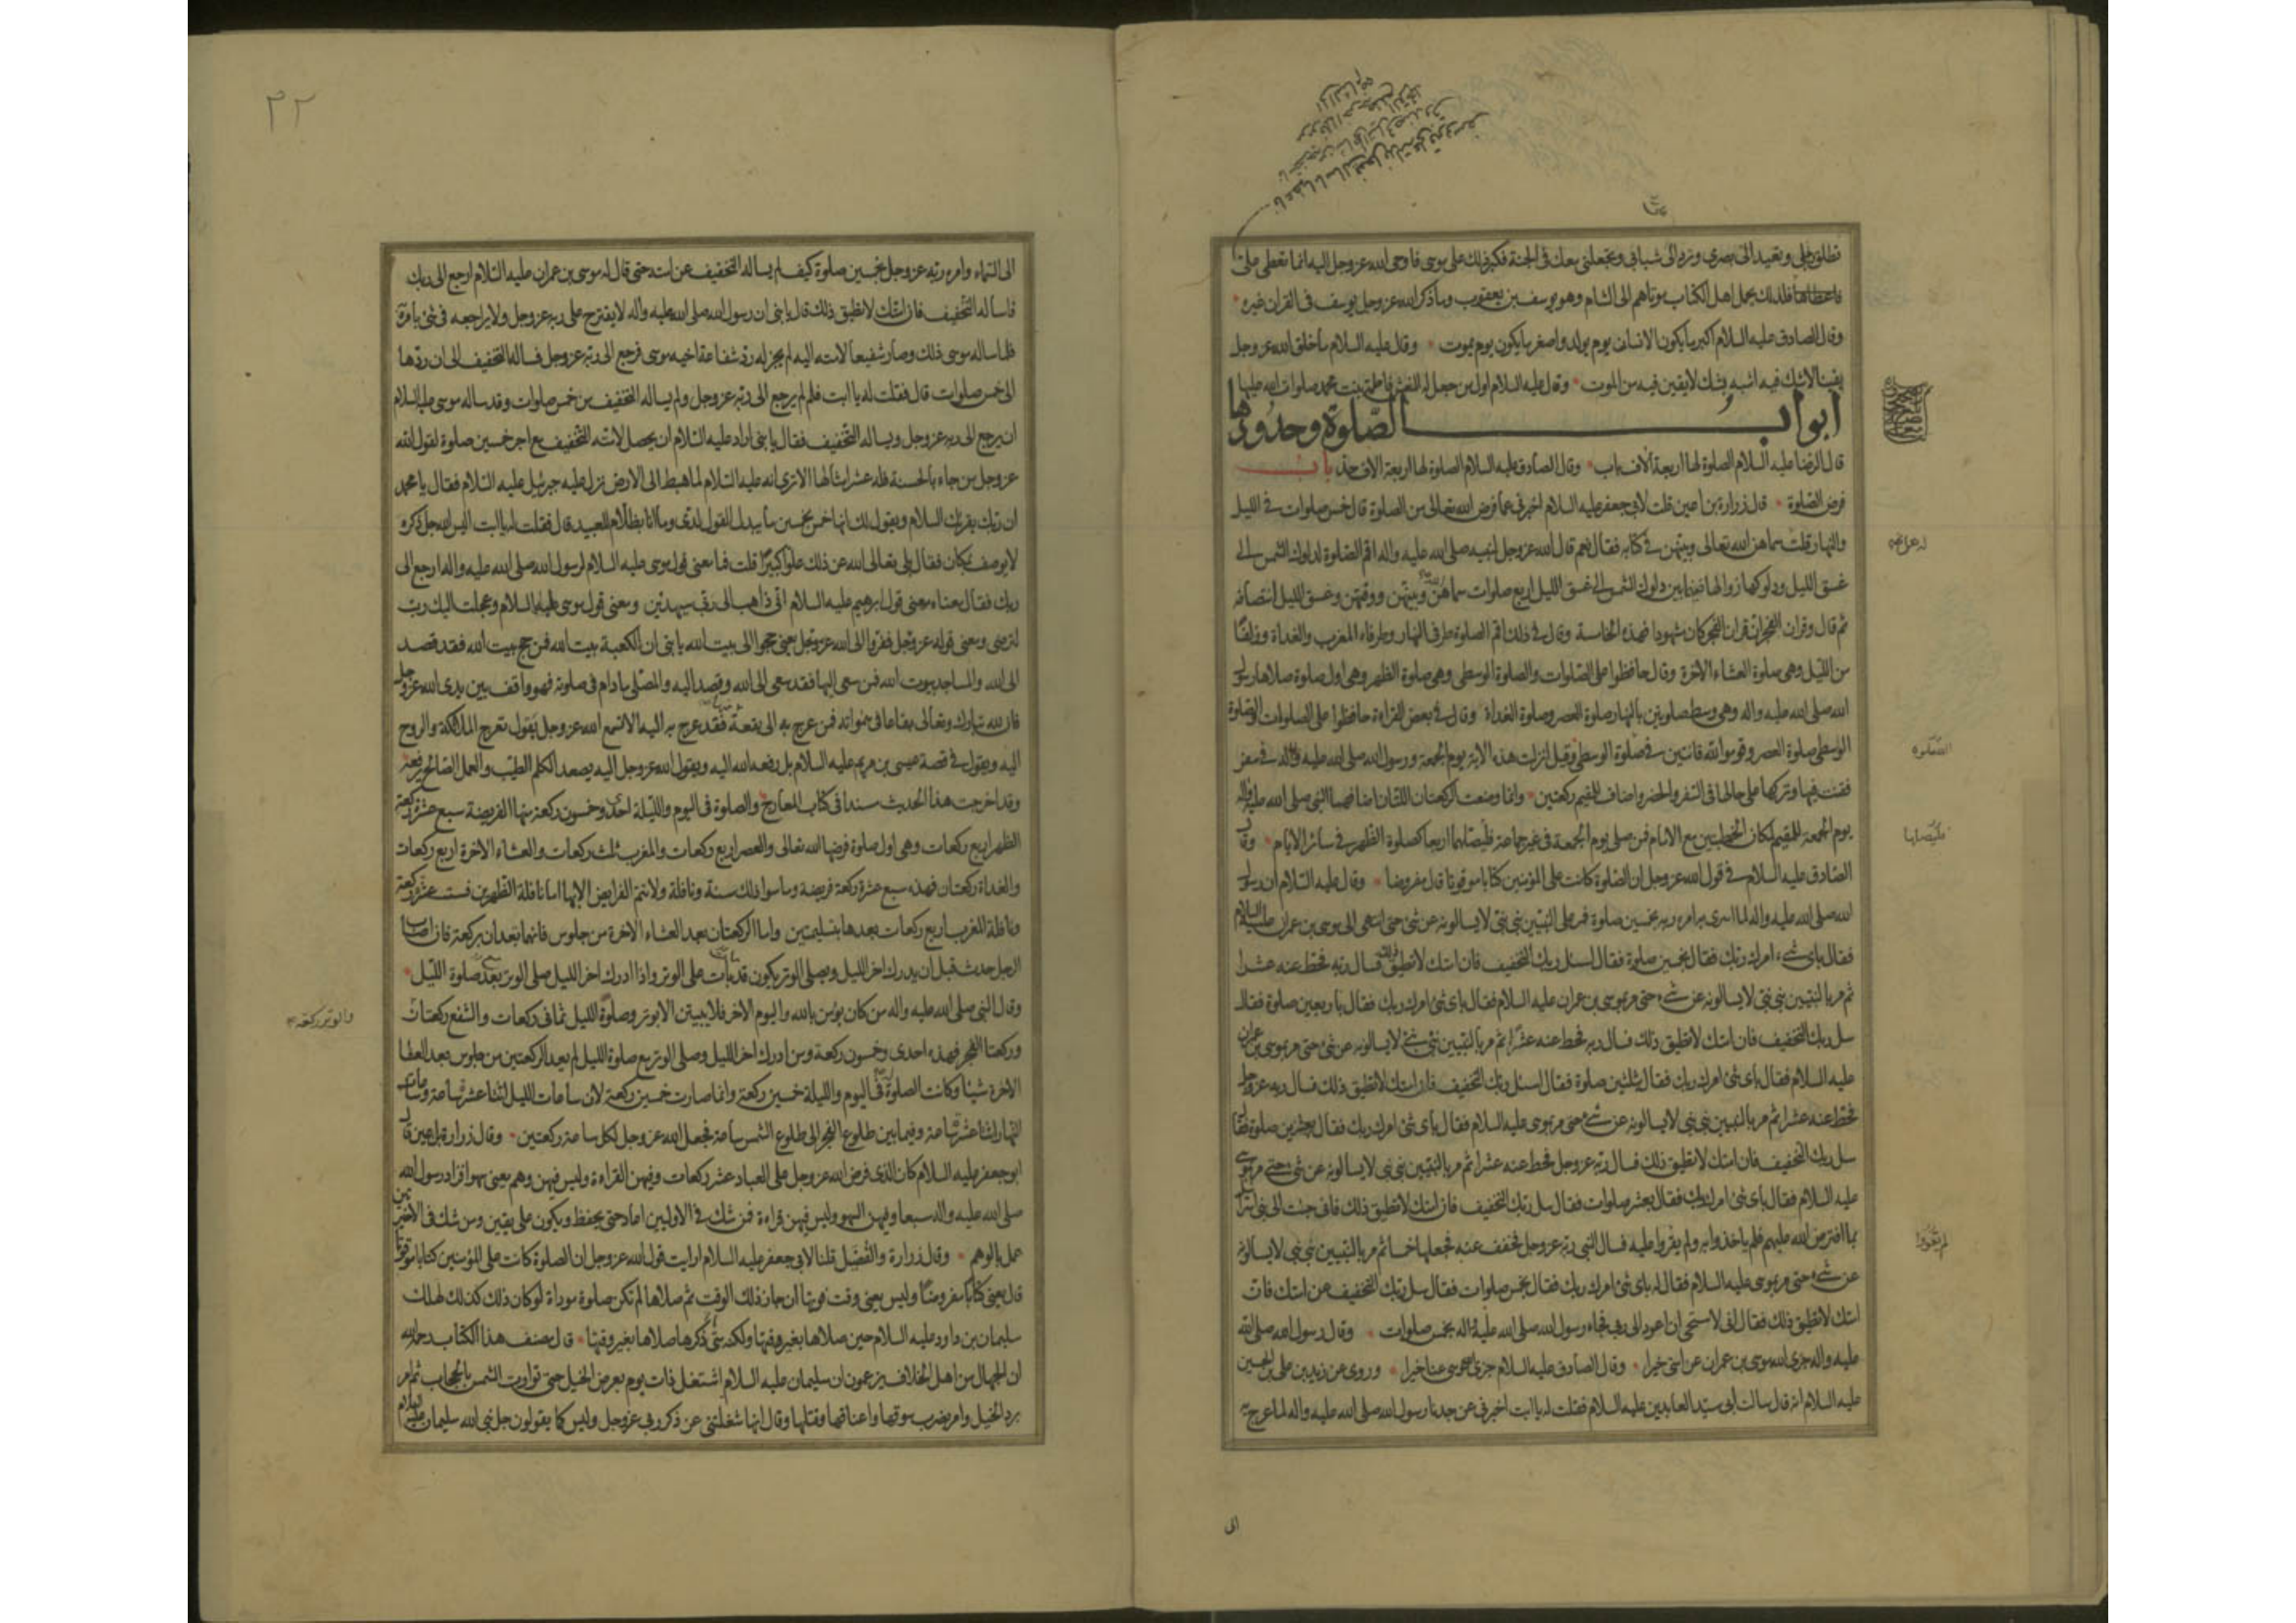 تطلق رجلي وتعيد الى بصري وترد الى شبابي وتجعلني معك في الجنة فكبر ذلك على موسى فاوحى الله عز وجل اليه انما تعطي على
فاعطاها فلذلك يحمل اهل الكتاب موتاهم الى الشام وهو يوسف بن يعقوب وما ذكر الله عز وجل يوسف في القران غيره
وقال الصادق عليه السلام اكبر ما يكون الانسان يوم يولد واصغر ما يكون يوم يموت وقال عليه السلام ما خلق الله عز وجل
يقينا لا شك فيه اشبه بشك لا يقين فيه من الموت وقال عليه السلام اول من جعل له النعش فاطمة بنت محمد صلوات الله عليها
ابواب الصلوة وحدودها
قال الرضا عليه السلام الصلوة لها اربعة آلاف باب وقال الصادق عليه السلام الصلوة لها اربعة الاف حد باب
فرض الصلوة قال زرارة بن اعين قلت لابي جعفر عليه السلام اخبرني عما فرض الله تعالى من الصلوة قال خمس صلوات في الليل
والنهار قلت سماهن الله تعالى وبينهن في كتابه فقال نعم قال الله عز وجل لنبيه صلى الله عليه واله اقم الصلوة لدلوك الشمس الى
غسق الليل ودلوكها زوالها ففيما بين دلوك الشمس الى غسق الليل اربع صلوات سماهن وبينهن ووقتهن وغسق الليل انتصافه
ثم قال وقران الفجر ان قران الفجر كان مشهودا فهذه الخامسة وقال في ذلك اقم الصلوة طرفي النهار وطرفاه المغرب والغداة وزلفا
من الليل وهي صلوة العشاء الاخرة وقال حافظوا على الصلوات والصلوة الوسطى وهي صلوة الظهر وهي اول صلوة صلاها رسول
الله صلى الله عليه واله وهي وسط صلوتين بالنهار صلوة العصر وصلوة الغداة وقال في بعض القراءة حافظوا على الصلوات والصلوة
الوسطى صلوة العصر وقوموا لله قانتين في صلوة الوسطى وقيل انزلت هذه الاية يوم الجمعة ورسول الله صلى الله عليه واله في سفر
فقنت فيها وتركها على حالها في السفر والحضر واضاف للمقيم ركعتين وانما وضعت الركعتان اللتان اضافهما النبي صلى الله عليه واله
يوم الجمعة للمقيم لمكان الخطبتين مع الامام فمن صلى يوم الجمعة في غير جماعة فليصلها اربعا كصلوة الظهر في سائر الايام وقال
الصادق عليه السلام في قول الله عز وجل ان الصلوة كانت على المؤمنين كتابا موقوتا قال مفروضا وقال عليه السلام ان رسول
الله صلى الله عليه واله لما اسرى به امره ربه بخمسين صلوة فمر على النبيين نبي نبي لا يسالونه عن شئ حتى انتهى الى موسى بن عمران عليه السلام
فقال باي شئ امرك ربك فقال بخمسين صلوة فقال اسئل ربك التخفيف فان امتك لا تطيق ذلك فسال ربه فحط عنه عشرا
ثم مر بالنبيين نبي نبي لا يسالونه عن شئ حتى مر بموسى بن عمران عليه السلام فقال باي شئ امرك ربك فقال باربعين صلوة فقال
سل ربك التخفيف فان امتك لا تطيق ذلك فسال ربه فحط عنه عشرا ثم مر بالنبيين نبي نبي لا يسالونه عن شئ حتى مر بموسى بن عمران
عليه السلام فقال باي شئ امرك ربك فقال بثلثين صلوة فقال اسئل ربك التخفيف فان امتك لا تطيق ذلك فسال ربه عز وجل
فحط عنه عشرا ثم مر بالنبيين نبي نبي لا يسالونه عن شئ حتى مر بموسى عليه السلام فقال باي شئ امرك ربك فقال بعشرين صلوة فقال
سل ربك التخفيف فان امتك لا تطيق ذلك فسال ربه عز وجل فحط عنه عشرا ثم مر بالنبيين نبي نبي لا يسالونه عن شئ حتى مر بموسى
عليه السلام فقال باي شئ امرك ربك فقال بعشر صلوات فقال سل ربك التخفيف فان امتك لا تطيق ذلك فاني جئت الى بني اسرائيل
بما افترض الله عليهم فلم ياخذوا به ولم يقروا عليه فسال النبي ربه عز وجل فخفف عنه فجعلها خمسا ثم مر بالنبيين نبي نبي لا يسالونه
عن شئ حتى مر بموسى عليه السلام فقال له باي شئ امرك ربك فقال بخمس صلوات فقال سل ربك التخفيف عن امتك فان
امتك لا تطيق ذلك فقال اني لاستحي ان اعود الى ربي فجاء رسول الله صلى الله عليه واله بخمس صلوات وقال رسول الله صلى الله
عليه واله جزى الله موسى بن عمران عن امتي خيرا وقال الصادق عليه السلام جزى الله موسى عنا خيرا وروي عن زيد بن علي بن الحسين
عليه السلام انه قال سالت ابي سيد العابدين عليه السلام فقلت له يا ابت اخبرني عن جدنا رسول الله صلى الله عليه واله لما عرج به
الصلوة
فليصلها
لم يقروا
الى
٣٢
الى السماء وامره ربه عز وجل بخمسين صلوة كيف لم يساله التخفيف عن امته حتى قال له موسى بن عمران عليه السلام ارجع الى ربك
فاساله التخفيف فان امتك لا تطيق ذلك قال يا بني ان رسول الله صلى الله عليه واله لا يقترح على ربه عز وجل ولا يراجعه في شئ يامره
فلما ساله موسى ذلك وصار شفيعا لامته اليه لم يجز له رد شفاعة اخيه موسى فرجع الى ربه عز وجل فساله التخفيف الى ان ردها
الى خمس صلوات قال فقلت له يا ابت فلم لم يرجع الى ربه عز وجل ولم يساله التخفيف من خمس صلوات وقد ساله موسى عليه السلام
ان يرجع الى ربه عز وجل ويساله التخفيف فقال يا بني اراد عليه السلام ان يحصل لامته التخفيف مع اجر خمسين صلوة لقول الله
عز وجل من جاء بالحسنة فله عشر امثالها الا ترى انه عليه السلام لما هبط الى الارض نزل عليه جبرئيل عليه السلام فقال يا محمد
ان ربك يقرئك السلام ويقول لك انها خمس بخمسين ما يبدل القول لدي وما انا بظلام للعبيد قال فقلت له يا ابت اليس الله جل ذكره
لا يوصف بمكان فقال بلى تعالى الله عن ذلك علوا كبيرا قلت فما معنى قول موسى عليه السلام لرسول الله صلى الله عليه واله ارجع الى
ربك فقال معناه معنى قول ابرهيم عليه السلام اني ذاهب الى ربي سيهدين ومعنى قول موسى عليه السلام وعجلت اليك رب
لترضى ومعنى قوله عز وجل ففروا الى الله عز وجل يعني حجوا الى بيت الله يا بني ان الكعبة بيت الله فمن حج بيت الله فقد قصد
الى الله والمساجد بيوت الله فمن سعى اليها فقد سعى الى الله وقصد اليه والمصلي ما دام في صلوته فهو واقف بين يدي الله عز وجل
فان لله تبارك وتعالى بقاعا في سمواته فمن عرج به الى بقعة فقد عرج به اليه الا تسمع الله عز وجل يقول تعرج الملائكة والروح
اليه ويقول في قصة عيسى بن مريم عليه السلام بل رفعه الله اليه ويقول الله عز وجل اليه يصعد الكلم الطيب والعمل الصالح يرفعه
وقد اخرجت هذا الحديث مسندا في كتاب المعارج والصلوة في اليوم والليلة احدى وخمسون ركعة منها الفريضة سبع عشرة ركعة
الظهر اربع ركعات وهي اول صلوة فرضها الله تعالى والعصر اربع ركعات والمغرب ثلث ركعات والعشاء الاخرة اربع ركعات
والغداة ركعتان فهذه سبع عشرة ركعة فريضة وما سوا ذلك سنة ونافلة ولا تتم الفرايض الا بها اما نافلة الظهرين فست عشرة ركعة
ونافلة المغرب اربع ركعات بعدها بتسليمتين واما الركعتان بعد العشاء الاخرة من جلوس فانهما تعدان بركعة فان اصاب
الرجل حدث قبل ان يدرك اخر الليل ويصلي الوتر يكون قد بات على الوتر واذا ادرك اخر الليل صلى الوتر بعد صلوة الليل
وقال النبي صلى الله عليه واله من كان يؤمن بالله واليوم الاخر فلا يبيتن الا بوتر وصلوة الليل ثماني ركعات والشفع ركعتان
وركعتا الفجر فهذه احدى وخمسون ركعة ومن ادرك اخر الليل وصلى الوتر مع صلوة الليل لم يعد الركعتين من جلوس بعد العشا
الاخرة شيئا وكانت الصلوة في اليوم والليلة خمسين ركعة وانما صارت خمسين ركعة لان ساعات الليل اثنا عشر ساعة وساعات
النهار اثنا عشر ساعة وفيما بين طلوع الفجر الى طلوع الشمس ساعة فجعل الله عز وجل لكل ساعة ركعتين وقال زرارة بن اعين قال
ابو جعفر عليه السلام كان الذي فرض الله عز وجل على العباد عشر ركعات وفيهن القراءة وليس فيهن وهم يعني سهو افزاد رسول الله
صلى الله عليه واله سبعا وفيهن السهو وليس فيهن قراءة فمن شك في الاوليين اعاد حتى يحفظ ويكون على يقين ومن شك في الاخيرتين
عمل بالوهم وقال زرارة والفضيل قلنا لابي جعفر عليه السلام ارايت قول الله عز وجل ان الصلوة كانت على المؤمنين كتابا موقوتا
قال يعني كتابا مفروضا وليس يعني وقت فوتها ان جاز ذلك الوقت ثم صلاها لم تكن صلوة موداة لو كان ذلك كذلك لهلك
سليمان بن داود عليه السلام حين صلاها بغير وقتها ولكنه متى ذكرها صلاها بغير وقتها قال مصنف هذا الكتاب رحمه الله
ان الجهال من اهل الخلاف يزعمون ان سليمان عليه السلام اشتغل ذات يوم بعرض الخيل حتى توارت الشمس بالحجاب ثم امر
برد الخيل وامر بضرب سوقها واعناقها وقتلها وقال انها شغلتني عن ذكر ربي عز وجل وليس كما يقولون جل نبي الله سليمان عليه السلام
والوتر ركعة